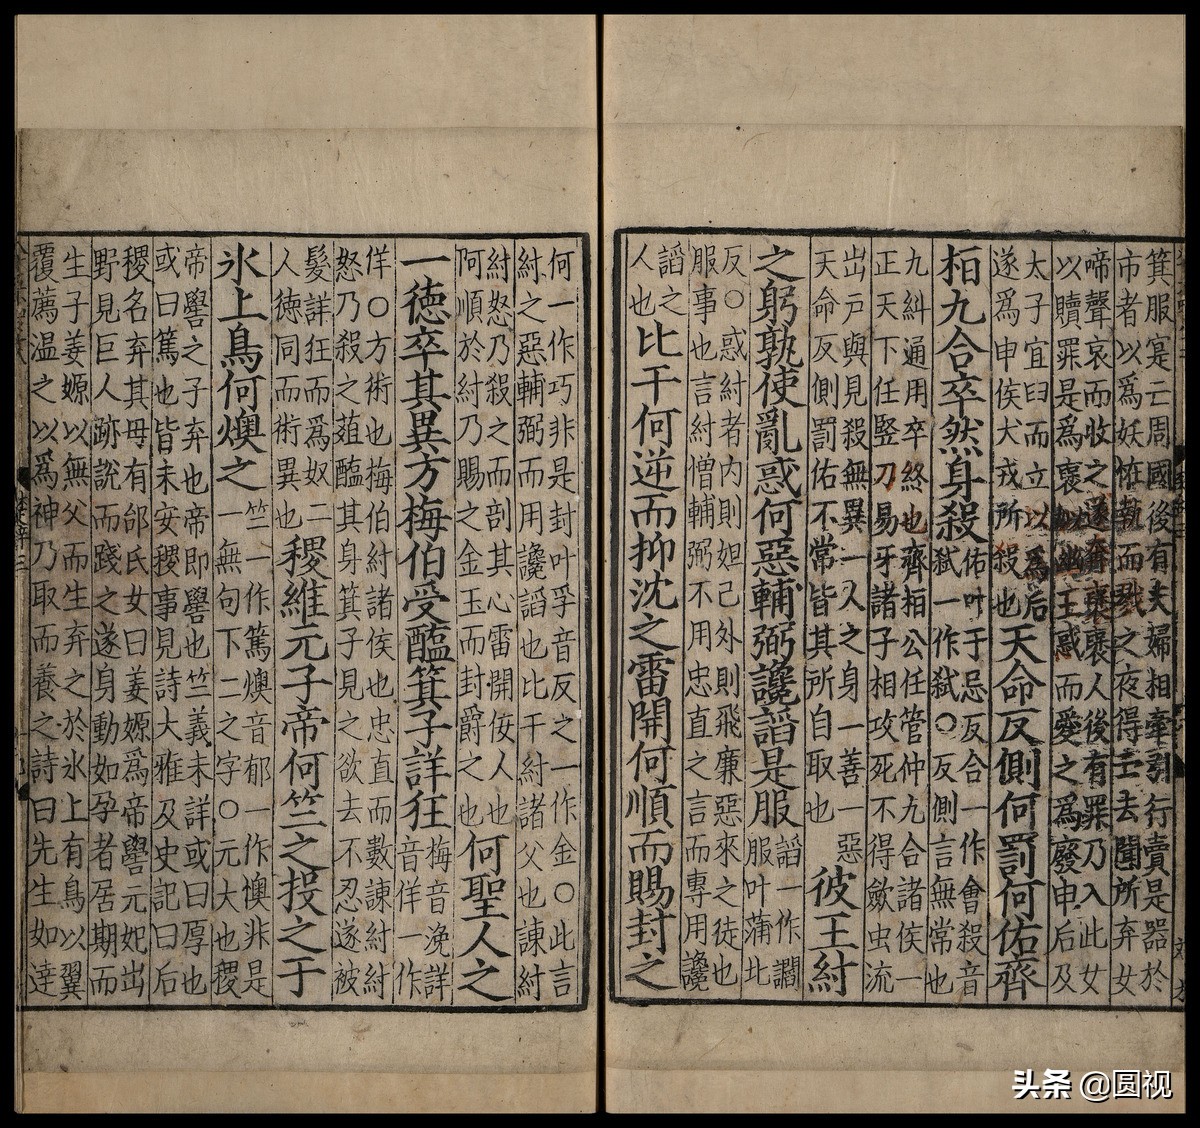 箕服寔亡周國後有夫婦相牽引行賣是器於
市者以爲妖恠執而戮之夜得亡去聞所弃女
啼聲哀而收之遂奔襃襃人後有罪乃入此女
以贖罪是爲襃姒幽王惑而愛之爲廢申后及
太子宜臼而立以爲后
遂爲申侯犬戎所殺也
天命反側何罰何佑齊
桓九合卒然身殺
佑叶于忌反合一作會殺音
弑一作弑○反側言無常也
九糾通用卒終也齊桓公任管仲九合諸侯一
正天下任竪刀易牙諸子相攻死不得歛虫流
出戶與見殺無異一人之身一善一惡
天命反側罰佑不常皆其所自取也
彼王紂
之躬孰使亂惑何惡輔弼讒謟是服
謟一作讇
服叶蒲北
反○惑紂者内則妲己外則飛廉惡來之徒也
服事也言紂憎輔弼不用忠直之言而專用讒
謟之
人也
比干何逆而抑沈之雷開何順而賜封之
何一作巧非是封叶孚音反之一作金○此言
紂之惡輔弼而用讒謟也比干紂諸父也諫紂
紂怒乃殺之而剖其心雷開佞人也
阿順於紂乃賜之金玉而封爵之也
何聖人之
一德卒其異方梅伯受醢箕子詳狂
梅音浼詳
音佯一作
佯○方術也梅伯紂諸侯也忠直而數諫紂紂
怒乃殺之葅醢其身箕子見之欲去不忍遂被
髮詳狂而爲奴二
人德同而術異也
稷維元子帝何竺之投之于
氷上鳥何燠之
竺一作篤燠音郁一作懊非是
一無句下二之字○元大也稷
帝嚳之子弃也帝即嚳也竺義未詳或曰厚也
或曰篤也皆未安稷事見詩大雅及史記曰后
稷名弃其母有邰氏女曰姜嫄爲帝嚳元妃出
野見巨人跡說而踐之遂身動如孕者居期而
生子姜嫄以無父而生弃之於氷上有鳥以翼
覆薦温之以爲神乃取而養之詩曰先生如達
头条 @圆视